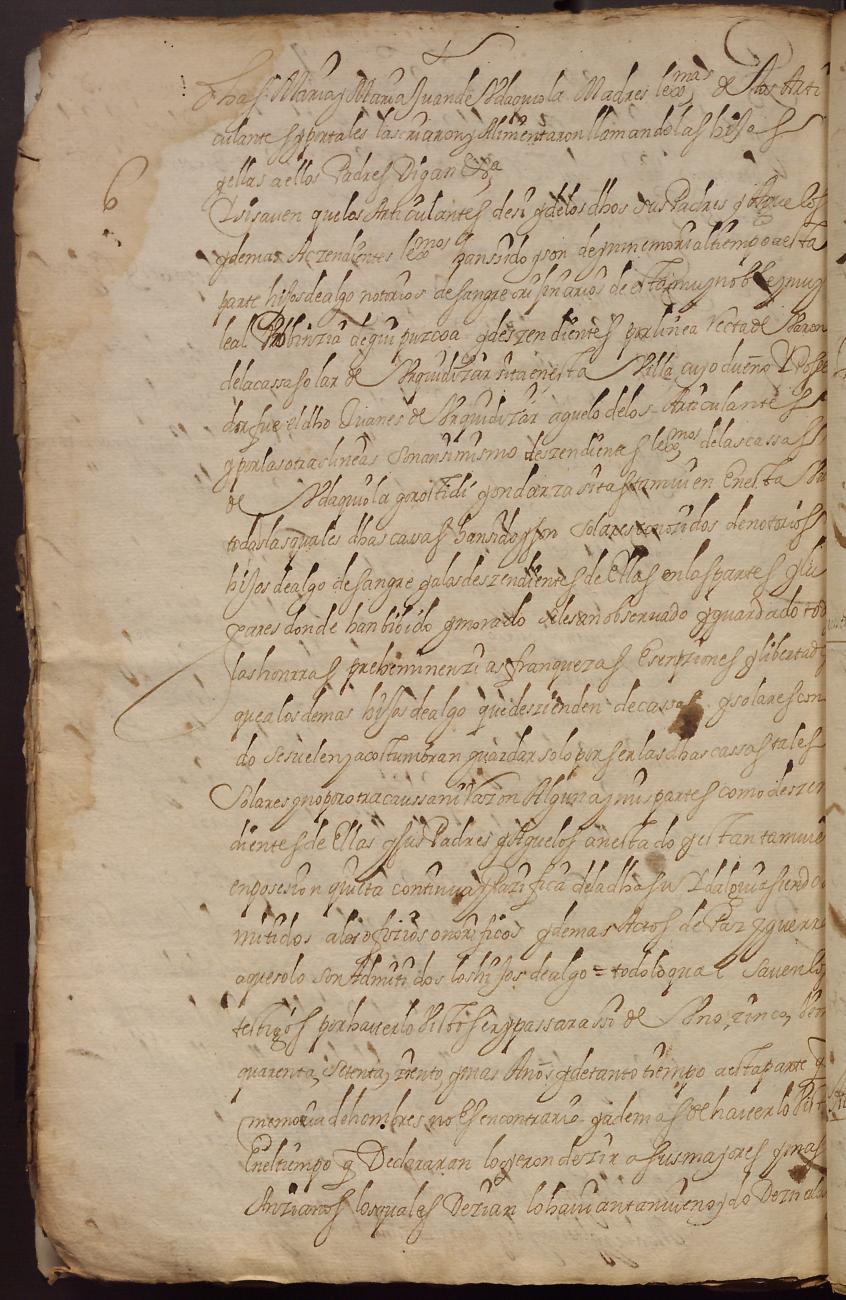 dhas Maria y Maria Juan de Ydaquiola Madres lexmas de los Arti
culantes y por tales las criaron y Alimentaron llamandolas hijas
y ellas a ellos Padres Digan &a
6
Y si saven que los Articulantes de si y de los dhos sus Padres y Aguelos
y demas Aczendientes lexmos han sido y son de ynmemorial tiempo a esta
parte hijos dealgo notorios de sangre orijinarios de esta muy noble y muy
leal Probinzia de guipuzcoa y deszendientes por linea recta de Baron
de la cassa solar de Urquidizar sita en esta Villa cuyo dueño y Posse
dor fue el dho Juanes de Urquidizar aguelo de los Articulantes
y por las otras lineas son ansimismo deszendientes lexmos de las cassas
de Ydaquiola goroltidi y ondarza sitas tamvien En esta Vi
todas las quales dhas cassas han sido y son Solares conozidos de notorios
hijos dealgo de sangre y a los deszendientes de Ellas en las partes y lu
gares donde han bibido y morado se les an observado y guardado tod
las honrras preheminenzias franquezas Esenpziones y libertad
que a los demas hijos dealgo que deszienden de cassas y solares con
do se suelen y acostumbran guardar solo por ser las dhas cassas tales
Solares y no por otra caussa ni razon Alguna y mis partes como deszen
dientes de Ellas y sus Padres y Aguelos an estado y estan tamvien
en posesion quieta continua y pazifica de la dha su Ydalguia siendo
mitidos a los ofizios onorificos y demas Actos de Paz y guerra
a que solo son Admitidos los hijos dealgo = todo lo qual saven los
testigos por haverlo Visto ser y passar assi de Uno, zinco, Vein
quarenta, Setenta, ziento y mas Años y de tanto tiempo a esta parte q
memoria de hombres no Es en contrario y ademas de haverlo Vist
En el tiempo q Declararan lo oyeron dezir a sus mayores y mas
Anzianos los quales Dezian lo havian tamvien oydo Dezir a los